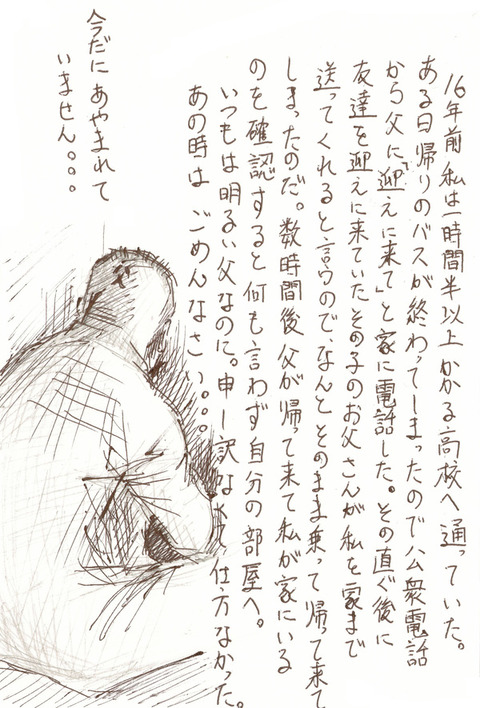 16年前 私は一時間半以上かかる高校へ通っていた。
ある日帰りのバスが終わってしまったので公衆電話
から父に「迎えに来て」と家に電話した。その直ぐ後に
友達を迎えに来ていたその子のお父さんが私を家まで
送ってくれると言うので、なんとそのまま乗って帰って来て
しまったのだ。数時間後父が帰って来て私が家にいる
のを確認すると何も言わず自分の部屋へ。
いつもは明るい父なのに。申し訳なくて仕方なかった。
あの時は ごめんなさい。。。
今だに あやまれて
いません。。。